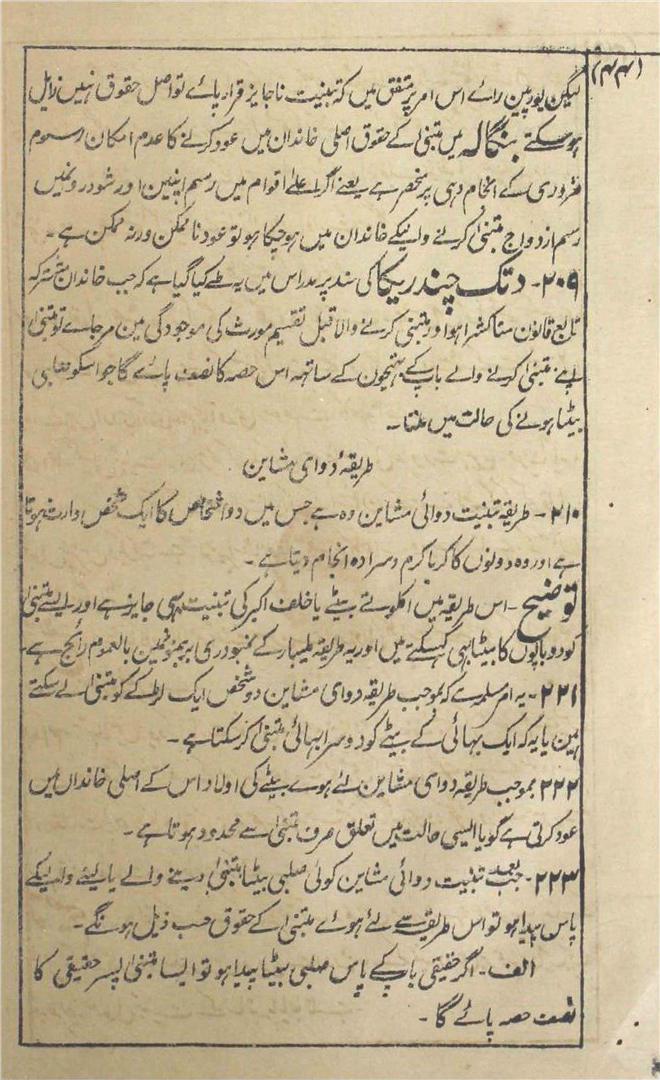 (۴۴)
لیکن یورپین رائے اس امر پر متفق ہیں کہ تبنیت ناجایز قرار پائے تو اصل حقوق نہیں زایل
ہوسکتے بنگالہ میں متبنیٰ کے حقوق اصلی خاندان میں عود کرنے کا عدم امکان رسوم
ضروری کے انجام دہی پر منحصر ہے یعنے اگر اعلےٰ اقوام میں رسم اپنین اور شودرونمیں
رسم ازدواج متبنیٰ کرلنے والیکے خاندان میں ہوچکا ہو تو عود ناممکن ورنہ ممکن ہے۔
۲۰۹۔ دتک چندریکا کی سند پر مدراس میں یہ طے کیا گیا ہے کہ جب خاندان مشترکہ
تابع قانون متاکشرا ہو اور متبنیٰ کرنے والا قبل تقسیم مورث کی موجودگی مین مرجاے تو متبنیٰ
اپنے متبنیٰ کرلنے والے باپ کے بھتیجون کے ساتھہ اس حصہ کا نصف پائے گا جو اسکو صلبی
بیٹا ہونے کی حالت میں ملتا۔
طریقۂ دوای مشاین
۲۱۰۔ طریقہ تبنیت دوائی مشاین وہ ہے جس میں دو اشخاص کا ایک شخص وارث ہوتا
ہے اور وہ دونوں کا کریا کرم دسرادہ انجام دیتا ہے۔
توضیح۔ اس طریقہ میں اکلوتے بیٹے یا خلف اکبر کی تبنیت بہی جایز ہے اور ایسے متبنیٰ
کو دو باپوں کا بیٹا بہی کہسکتے ہیں اور یہ طریقہ ملیبار کے نمبودری برہمنونمین بالعموم رائج ہے۔
۲۲۱۔ یہ امر مسلمہ ہے کہ بموجب طریقہ دوای مشاین دو شخص ایک لڑکے کو متبنیٰ لے سکتے
ہین یا یہ کہ ایک بہائی کے بیٹے کو دوسرا بہائی متبنیٰ کرسکتا ہے۔
۲۲۲ بموجب طریقہ دوای مشاین لئے ہوے بیٹے کی اولاد اس کے اصلی خاندان میں
عود کرتی ہے گویا ایسی حالت میں تعلق صرف متبنیٰ سے محدود ہوتا ہے۔
۲۲۳۔ جب بعد تبنیت دوائی مشاین کوئی صلبی بیٹا متبنیٰ دینے والے یا لینے والیکے
پاس پیدا ہو تو اس طریقہ سے لئے ہوئے متبنیٰ کے حقوق حسب ذیل ہونگے۔
الف۔ اگر حقیقی باپ کے پاس صلبی بیٹا پیدا ہو تو ایسا متبنیٰ پسر حقیقی کا
نصف حصہ پائے گا۔